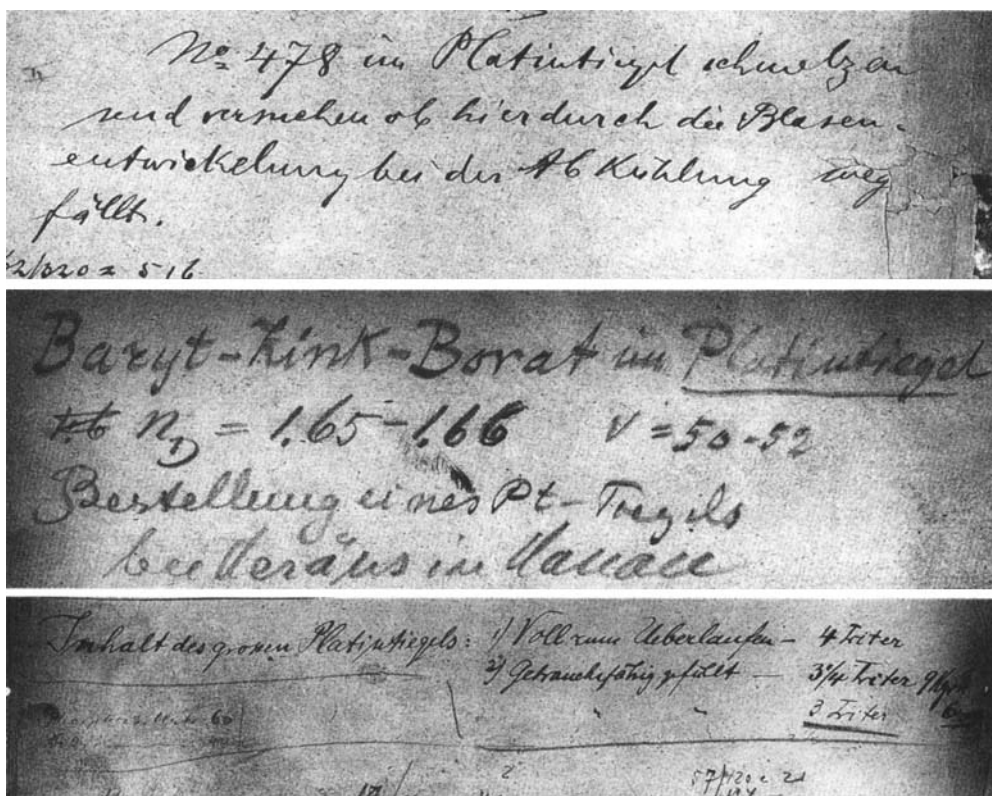 No 478 im Platintiegel schmelzen
und versuchen ob hierdurch die Blasen-
entwickelung bei der Abkühlung weg
fällt.
/320 = 516
Baryt-Zink-Borat im Platintiegel
n_D = 1.65-1.66 ν = 50-52
Bestellung eines Pt-Tiegels
bei Heräus in Hanau
Inhalt des grossen Platintiegels: 1) Voll zum Ueberlaufen - 4 Liter
2) Gebrauchsfähig gefüllt - 3 1/4 Liter
3 Liter